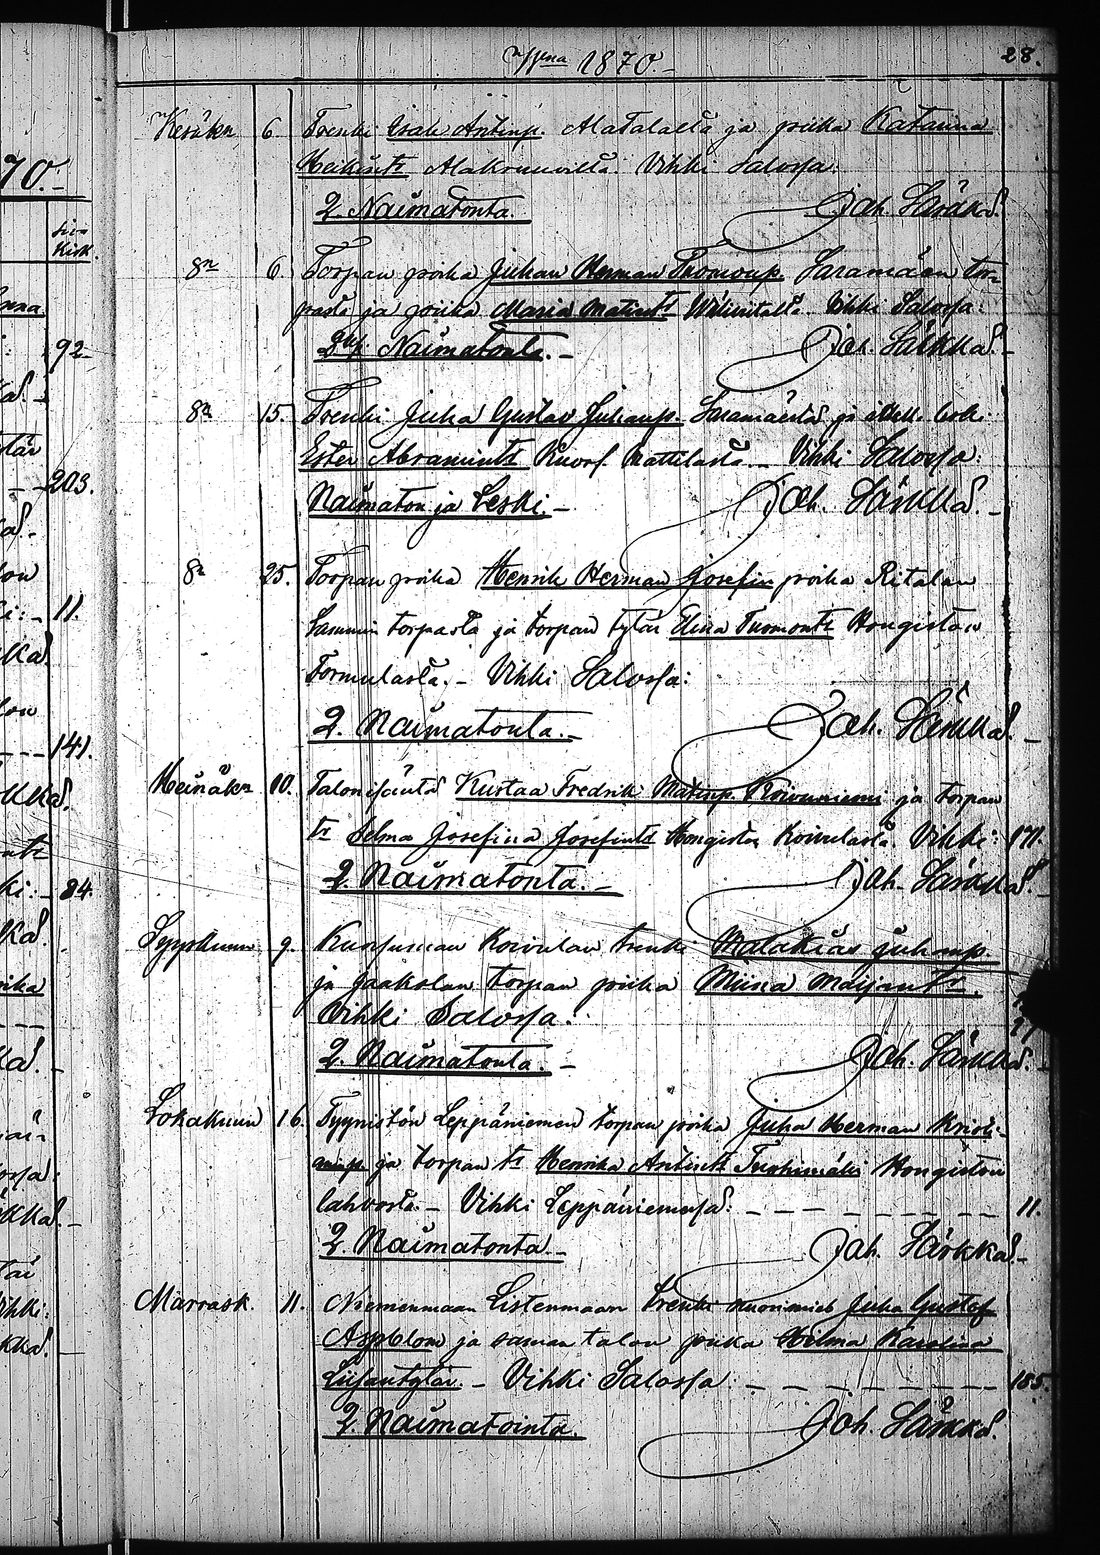 1870.- 28.
Kesäkn 6. Trenki Isak Antinp. Alatalolta ja piika Katarina
Heikintr Alakruuvilla. Vihki Salossa:
2 Naimatonta. Joh. Särkkä
8n 6. Torpan poika Juhan Herman Tuomonp. Saramäen tor-
pasta ja piika Maria Matintr Vihki Salossa:
Naimatonta.- Joh. Särkkä.-
8n 15. Trenki Juha Gustav Juhanp. Saramäestä ja
Ester Abramintr Mattilasta.- Vihki Salossa:
Naimaton ja Leski.- Joh. Särkkä.-
8n 25. Torpan poika Henrik Herman Josefin poika Ritalan
Sammin torpasta ja torpan tytär Elina Tuomontr Hongiston
Tormulasta.- Vihki Salossa:
2. Naimatonta.- Joh. Särkkä.-
Heinäkn 10. Talonisäntä Kustaa Fredrik Matinp. Koivuniemi ja torpan
tr Selma Josefina Josefintr Hongiston Koivulasta. Vihki: 171.
2. Naimatonta.- Joh. Särkkä.-
Syyskuun 9. Koivulan trenki Malakias Juhanp.
ja Jaakolan torpan piika Miina Maijantr.
Vihki Salossa:
2. Naimatonta.- Joh. Särkkä.-
Lokakuun 16. Tyynistön Leppäniemen torpan poika Juha Herman Kristi-
aninp. ja torpan tr Henrika Antintr Hongiston
lahvosta.- Vihki Leppäniemessä: - - - - - - - 11.
2. Naimatonta.- Joh. Särkkä.-
Marrask. 11. Niemenmaan Listenmaan trenki nuorimies Juha Gustaf
Asplom ja saman talon piika Hilma Karolina
Liisantytär.- Vihki Salossa: - - - - - - - 185.
2. Naimatointa. Joh. Särkkä.
70.-
Kirk.
92.
203.
11.
141.
84.